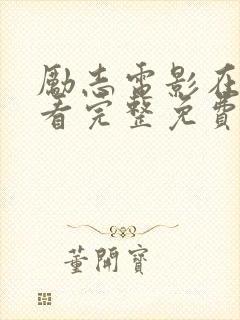 励志電影在
看完整免費
董開寶